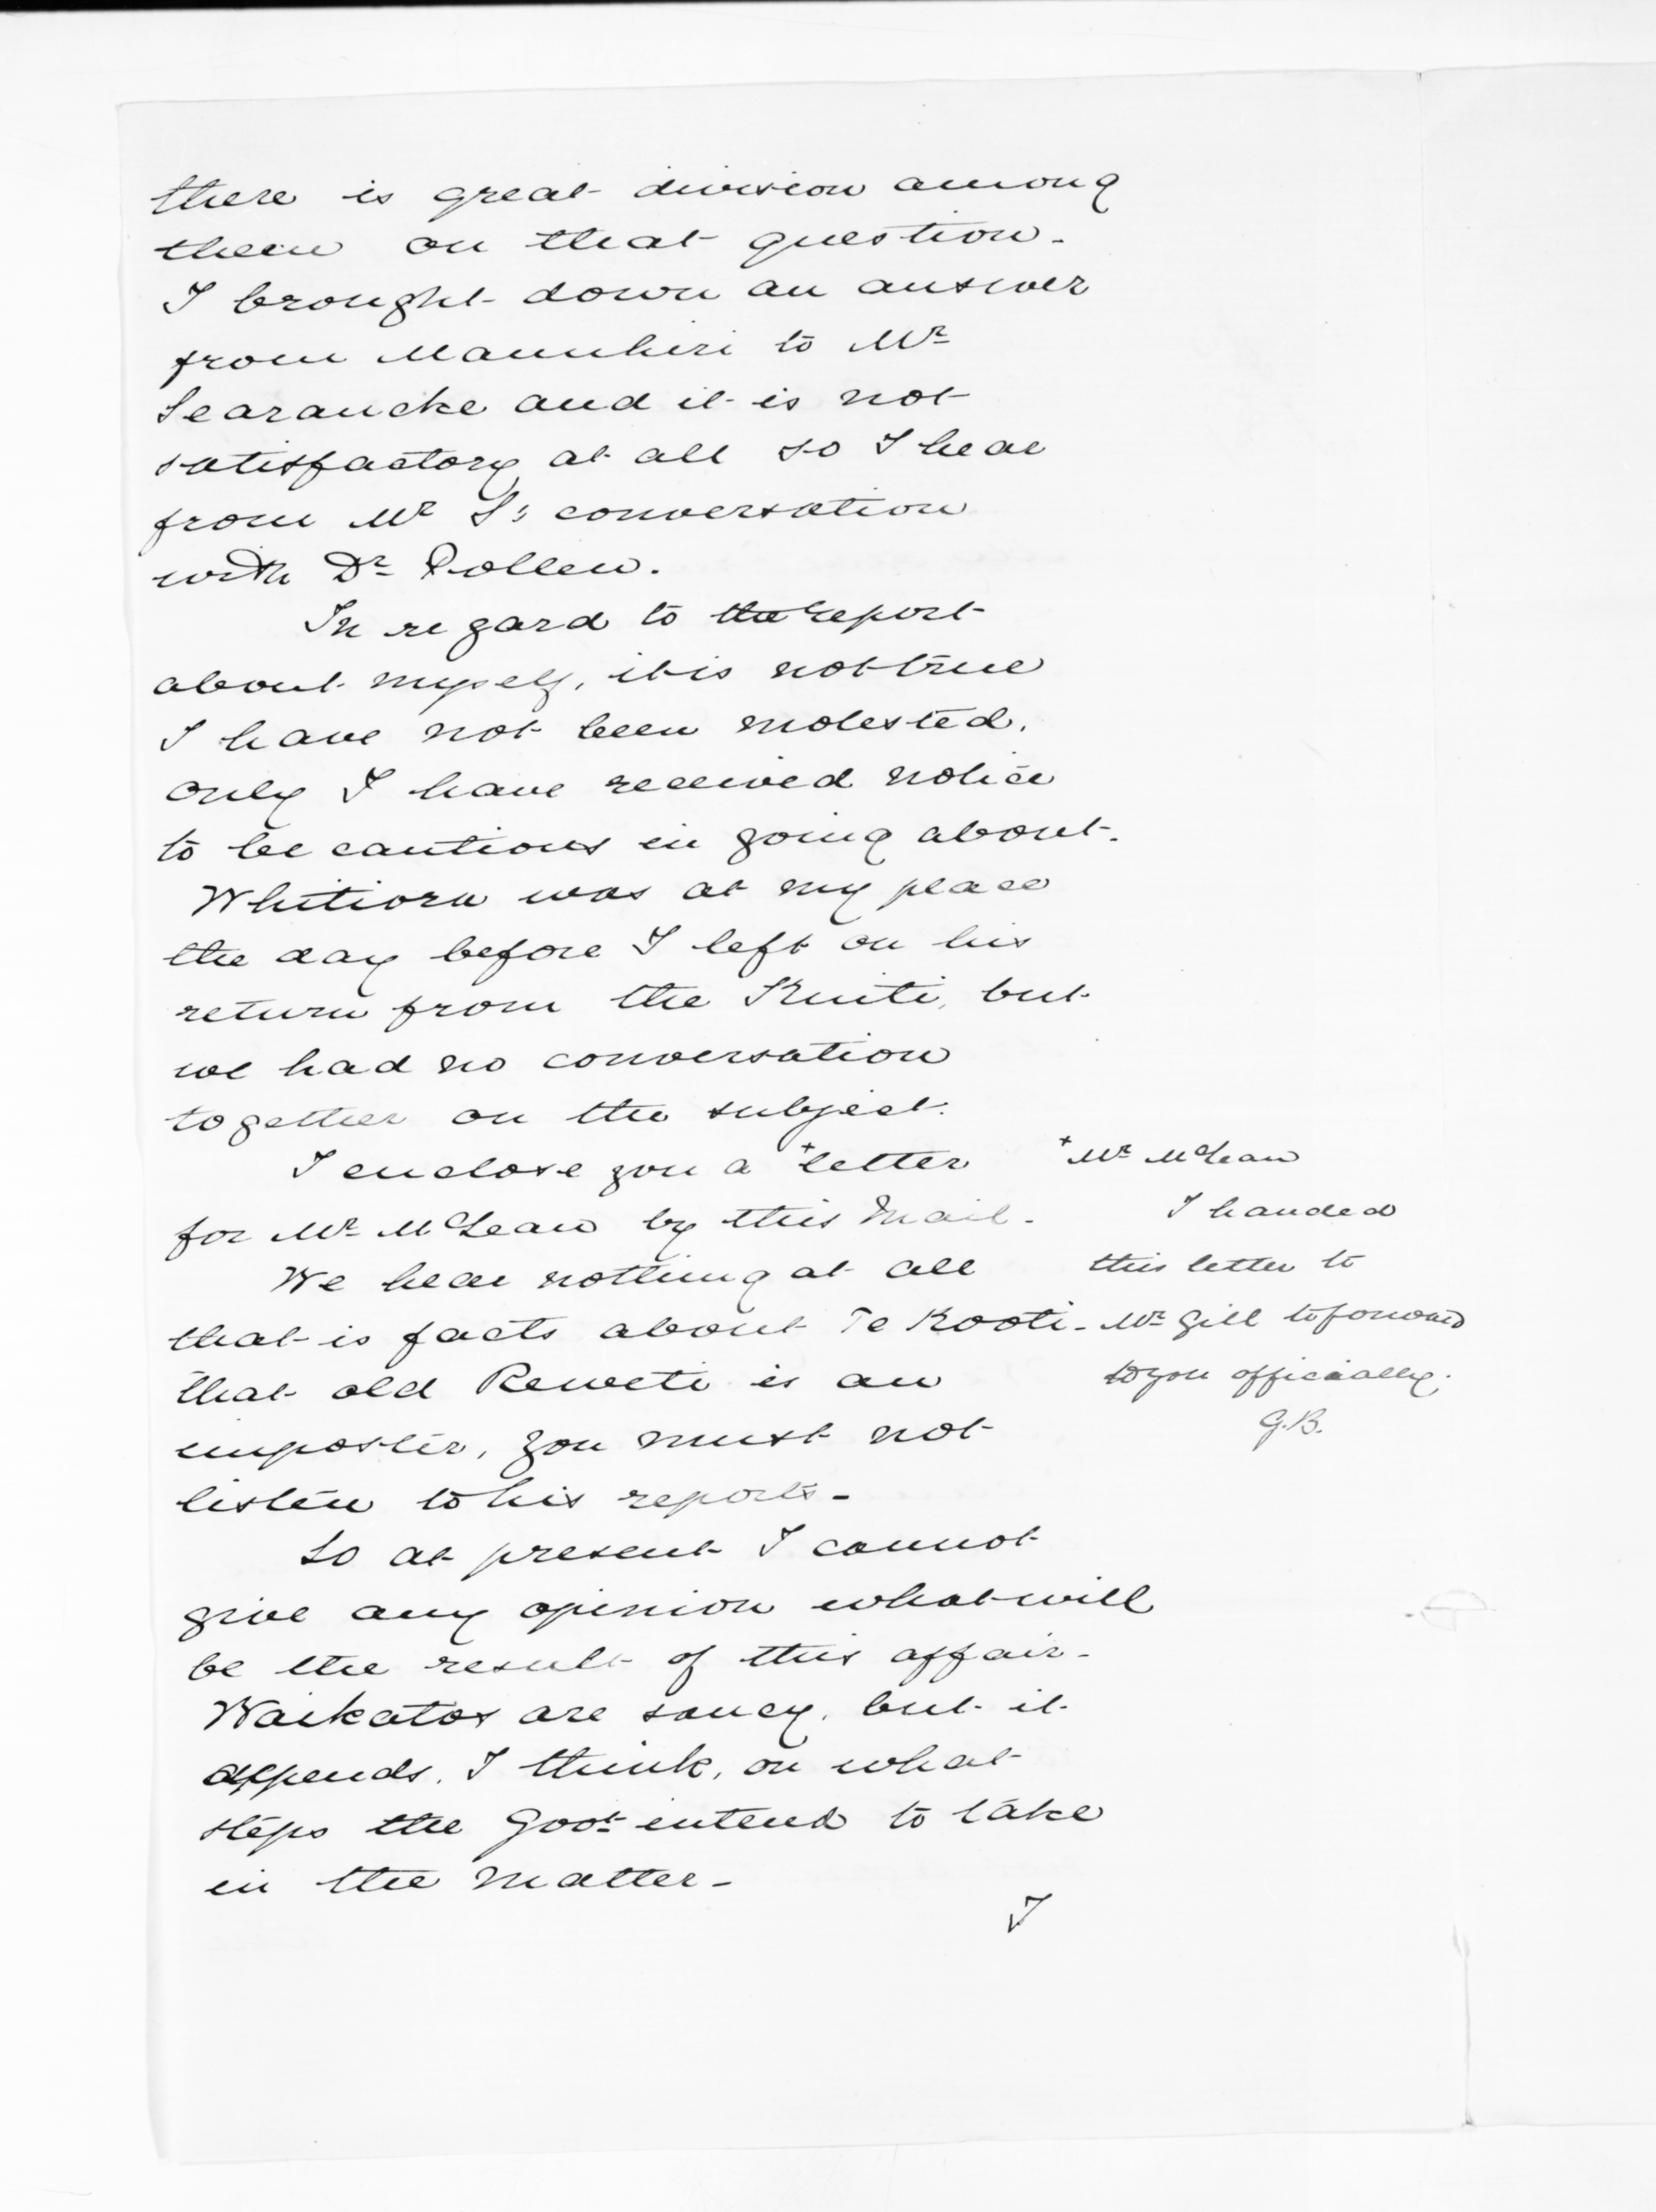 there is great division among
them on that question.
I brought down an answer
from Manuhiri to Mr
Searancke and it is not
satisfactory at all so I hear
from Mr S's conversation
with Dr Pollen.
In regard to the report
about myself, it is not true
I have not been molested,
only I have received notice
to be cautious in going about.
Whitiora was at my place
the day before I left on his
return from the Kuiti, but
we had no conversation
together on the subject.
I enclose you a + letter
for Mr McLean by this Mail.
We hear nothing at all
that is facts about Te Kooti.
that old Reweti is an
imposter, you must not
listen to his reports.
So at present I cannot
give any opinion what will
be the result of this affair.
Waikatos are saucy, but it
depends, I think, on what
steps the Govt intend to take
in the matter.
I
+ Mr McLean
I handed
this letter to
Mr Gill to forward
to you officially.
G.B.